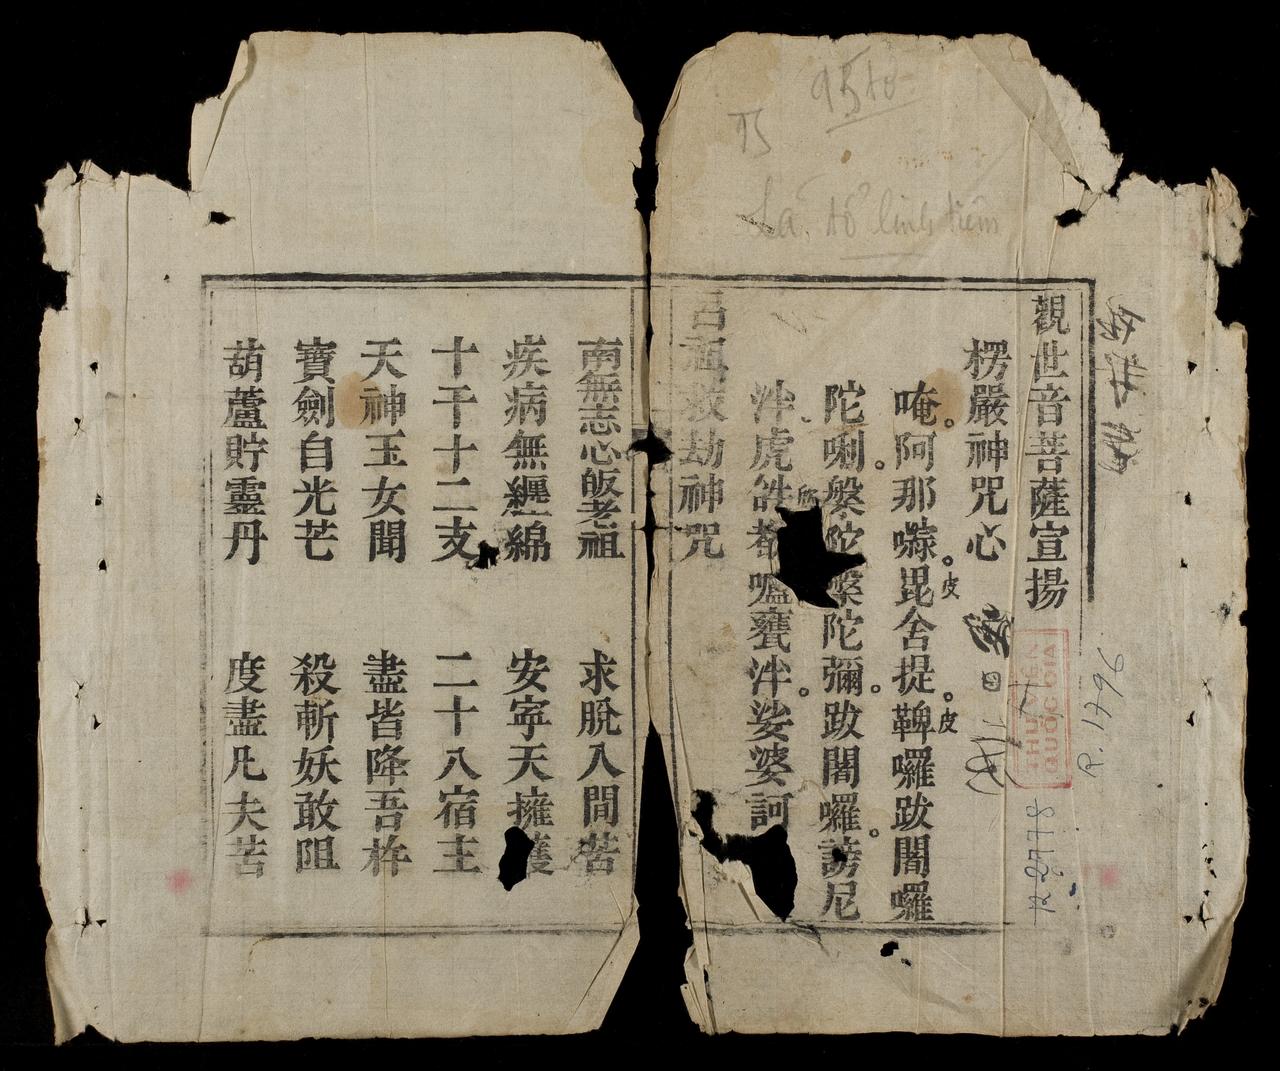 觀世音菩薩宣揚
楞嚴神咒心
唵。阿那㘑。毘舍提。鞞囉跋闍囉
皮
皮
陀唎。槃陀槃陀彌。跋闍囉。謗尼
泮。虎𤙖都嚧甕泮。娑婆訶
呂祖救劫神咒
南無志心皈老祖 求脫人間苦
疾病無纏綿 安寧天擁護
十干十二支 二十八宿主
天神玉女聞 盡皆降吾杵
寶劍自光芒 殺斬妖敢阻
葫蘆貯靈丹 度盡凡夫苦
Lã tổ linh tiêm
THƯ VIỆN
QUỐC GIA
R. 1796
R 2778